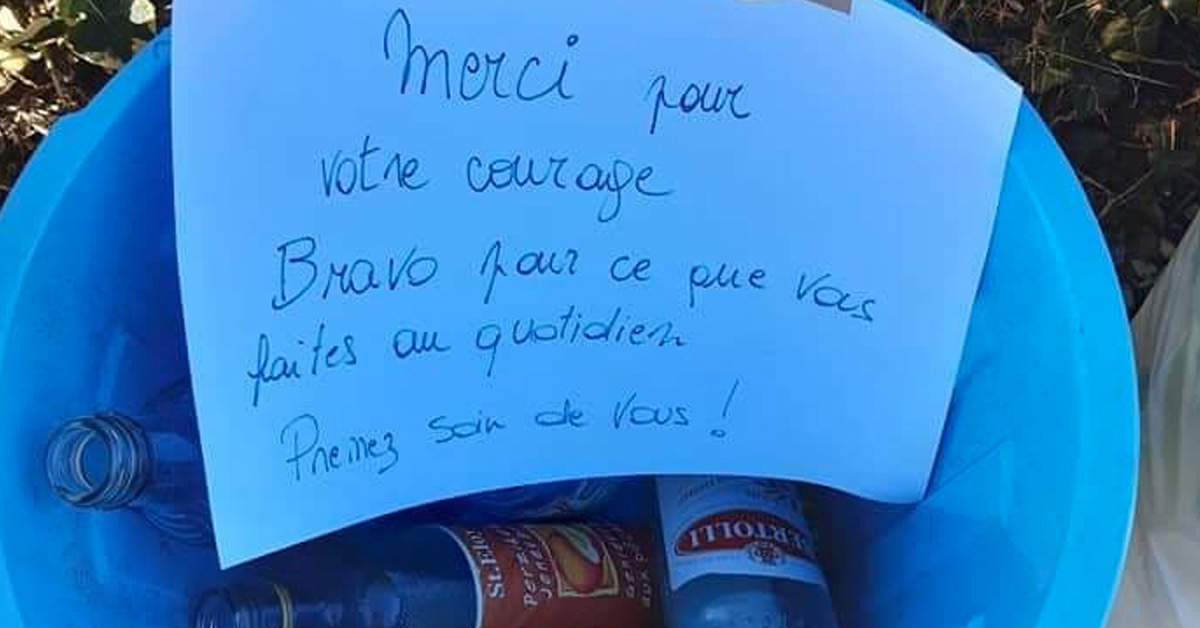 Merci pour
votre courage
Bravo pour ce que vous
faites au quotidien
Prenez soin de vous !
BERTOLLI